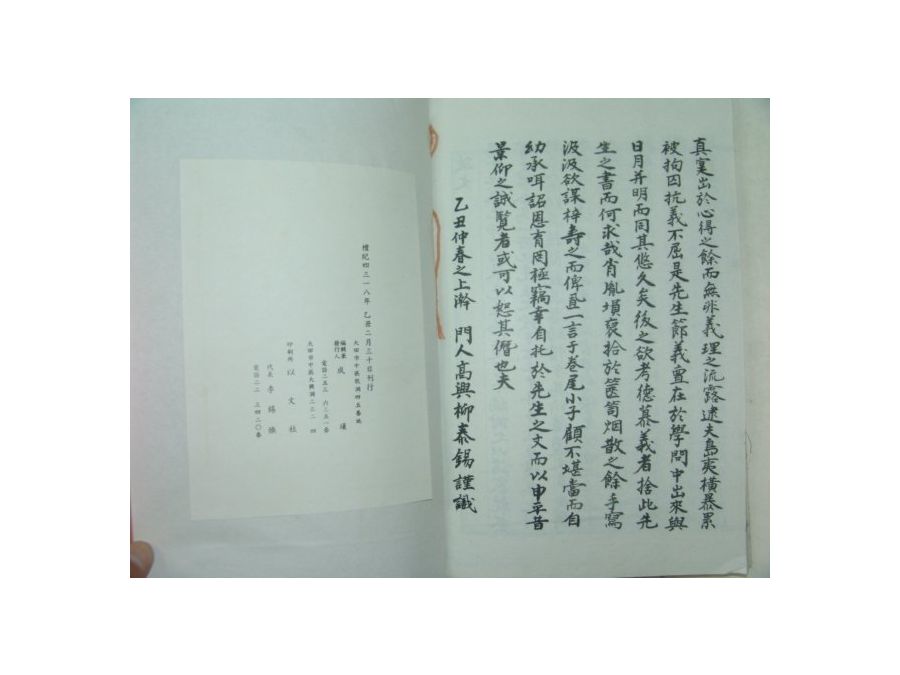 真寔出於心得之餘而無非義理之流露逮夫島夷橫暴累
被拘囚抗義不屈是先生節義寔在於學問中出來與
日月并明而同其悠久矣後之欲考德慕義者捨此先
生之書而何求哉胤塤裒拾於篋笥烟散之餘手寫
汲汲欲謀梓壽之而俾亙一言于卷尾小子顧不堪當而自
幼承咡詔恩育罔極竊幸自托於先生之文而以申平昔
景仰之誠覽者或可以恕其僭也夫
乙丑仲春之上澣 門人高興柳泰錫謹識
檀紀四三一八年 乙丑二月三十日刊行
大田市中區牧洞四五番地
編輯兼發行人 成
電話二五三 六三五一番
大田市中區大興洞二三二 四
印刷所 以文社
代表 李錫
電話二二 三四二〇番